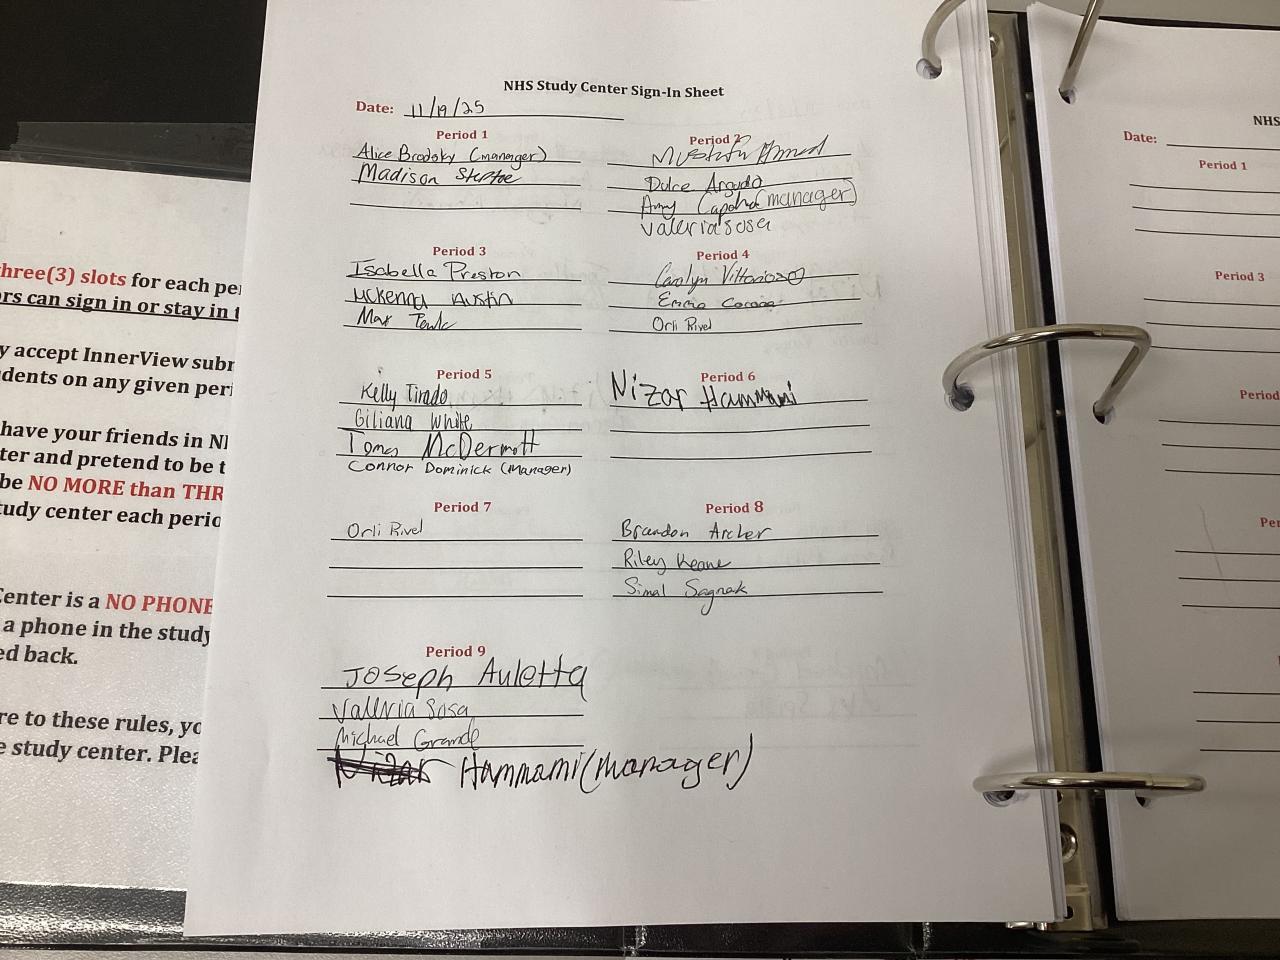 NHS Study Center Sign-In Sheet
Date: 11/19/25
Period 1
Alice Brodsky (manager)
Madison Steptoe
Period 2
Mustafa Ahmed
Dulce Argudo
Amy (manager)
Valeria Sosa
Period 3
Isabella Preston
McKenna Austin
Max
Period 4
Carolyn Vittorioso
Emma
Orli Rivel
Period 5
Kelly Tirado
Giliana White
Tomas McDermott
Connor Dominick (Manager)
Period 6
Nizar Hammami
Period 7
Orli Rivel
Period 8
Brandon Archer
Riley Keane
Simal Sagnak
Period 9
Joseph Auletta
Valeria Sosa
Michael Grande
Nizar Hammami (manager)
three(3) slots for each
ors can sign in or stay in
accept InnerView
dents on any given
have your friends in
ter and pretend to be
be NO MORE than
tudy center each
Center is a NO PHONE
a phone in the study
ed back.
re to these rules,
e study center.
NHS
Date:
Period 1
Period 3
Period